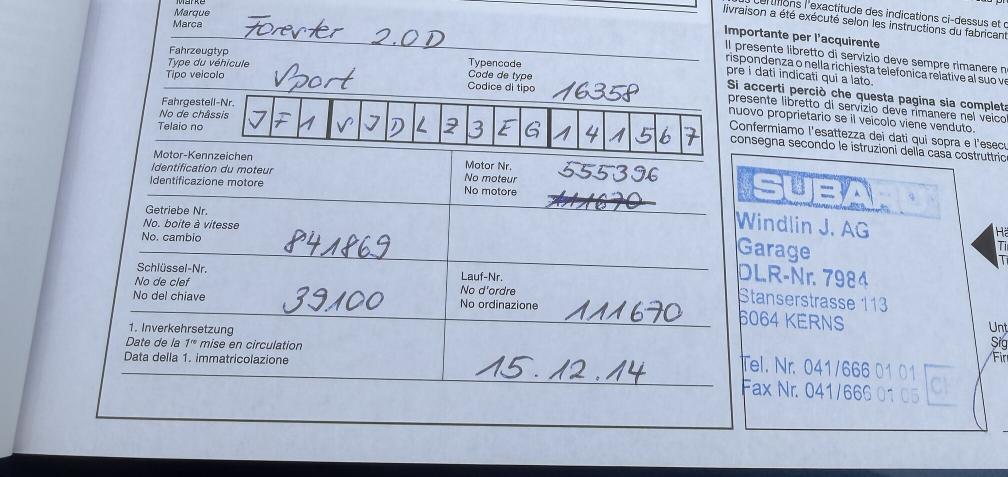 Marke
Marque
Marca
Forester 2.0D
Fahrzeugtyp
Type du véhicule
Tipo veicolo
Sport
Typencode
Code de type
Codice di tipo
16358
Fahrgestell-Nr.
No de châssis
Telaio no
JF1SJDLZ3EG141567
Motor-Kennzeichen
Identification du moteur
Identificazione motore
Motor Nr.
No moteur
No motore
555396
111670
Getriebe Nr.
No. boîte à vitesse
No. cambio
841869
Schlüssel-Nr.
No de clef
No del chiave
39100
Lauf-Nr.
No d'ordre
No ordinazione
111670
1. Inverkehrsetzung
Date de la 1re mise en circulation
Data della 1. immatricolazione
15.12.14
Nous certifions l'exactitude des indications ci-dessus et
livraison a été exécuté selon les instructions du fabricant
Importante per l'acquirente
Il presente libretto di servizio deve sempre rimanere
rispondenza o nella richiesta telefonica relative al suo
pre i dati indicati qui a lato.
Si accerti perciò che questa pagina sia
presente libretto di servizio deve rimanere nel
nuovo proprietario se il veicolo viene venduto.
Confermiamo l'esattezza dei dati qui sopra e
consegna secondo le istruzioni della casa
SUBARU
Windlin J. AG
Garage
DLR-Nr. 7984
Stanserstrasse 113
6064 KERNS
Tel. Nr. 041/666 01 01
Fax Nr. 041/666 01 05